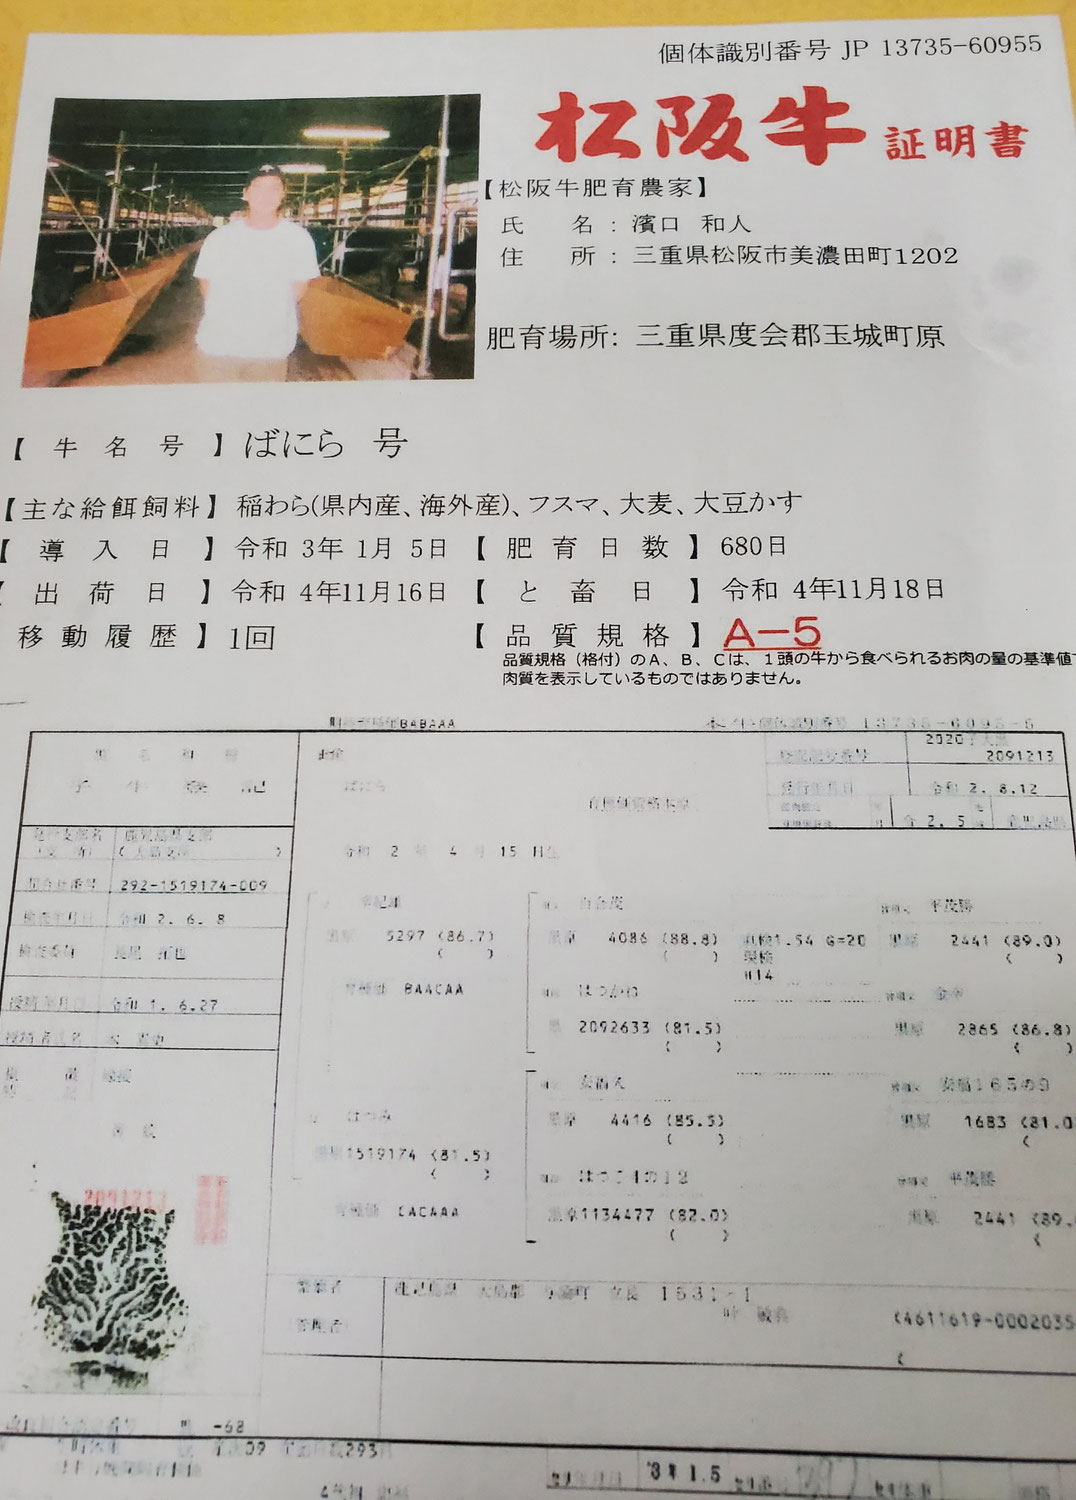 個体識別番号 JP 13735-60955
松阪牛 証明書
【松阪牛肥育農家】
氏 名 : 濱口 和人
住 所 : 三重県松阪市美濃田町1202
肥育場所: 三重県度会郡玉城町原
【 牛 名 号 】 ばにら 号
【主な給餌飼料】 稲わら(県内産、海外産)、フスマ、大麦、大豆かす
【 導 入 日 】 令和 3年 1月 5日 【 肥 育 日 数 】 680日
【 出 荷 日 】 令和 4年11月16日 【 と 畜 日 】 令和 4年11月18日
移 動 履 歴 】 1回 【 品 質 規 格 】 A-5
品質規格（格付）のA、B、Cは、1頭の牛から食べられるお肉の量の基準値で
肉質を表示しているものではありません。
BABAAA 個体識別番号 13735-6095-5
黒 毛 和 種
子 牛 登 記
2020
登記記号番号 2091213
発行年月日 令和 2. 8.12
2. 5
ばにら
令和 2 年 4 月 15 日生
292-1519174-009
検査年月日 令和 2. 6. 8
検査委員
授精年月日 令和 1. 6.27
5297 (86.7)
育種価 BAACAA
百合茂
黒原 4086 (88.8)
直検1.54 G=20
現検
H14
平茂勝
黒原 2441 (89.0)
はつかね
黒 2092633 (81.5)
金幸
黒原 2865 (86.8)
安福久
黒原 4416 (85.5)
安福165の9
黒原 1683 (81.0
はつみ
黒原1519174 (81.5)
育種価 CACAAA
黒原1134477 (82.0)
平茂勝
黒原 2441 (89.
2091213
鹿児島県 大島郡 与論町 立長 1531-1
(4611619-0002035
-68
293
'3年 1.5